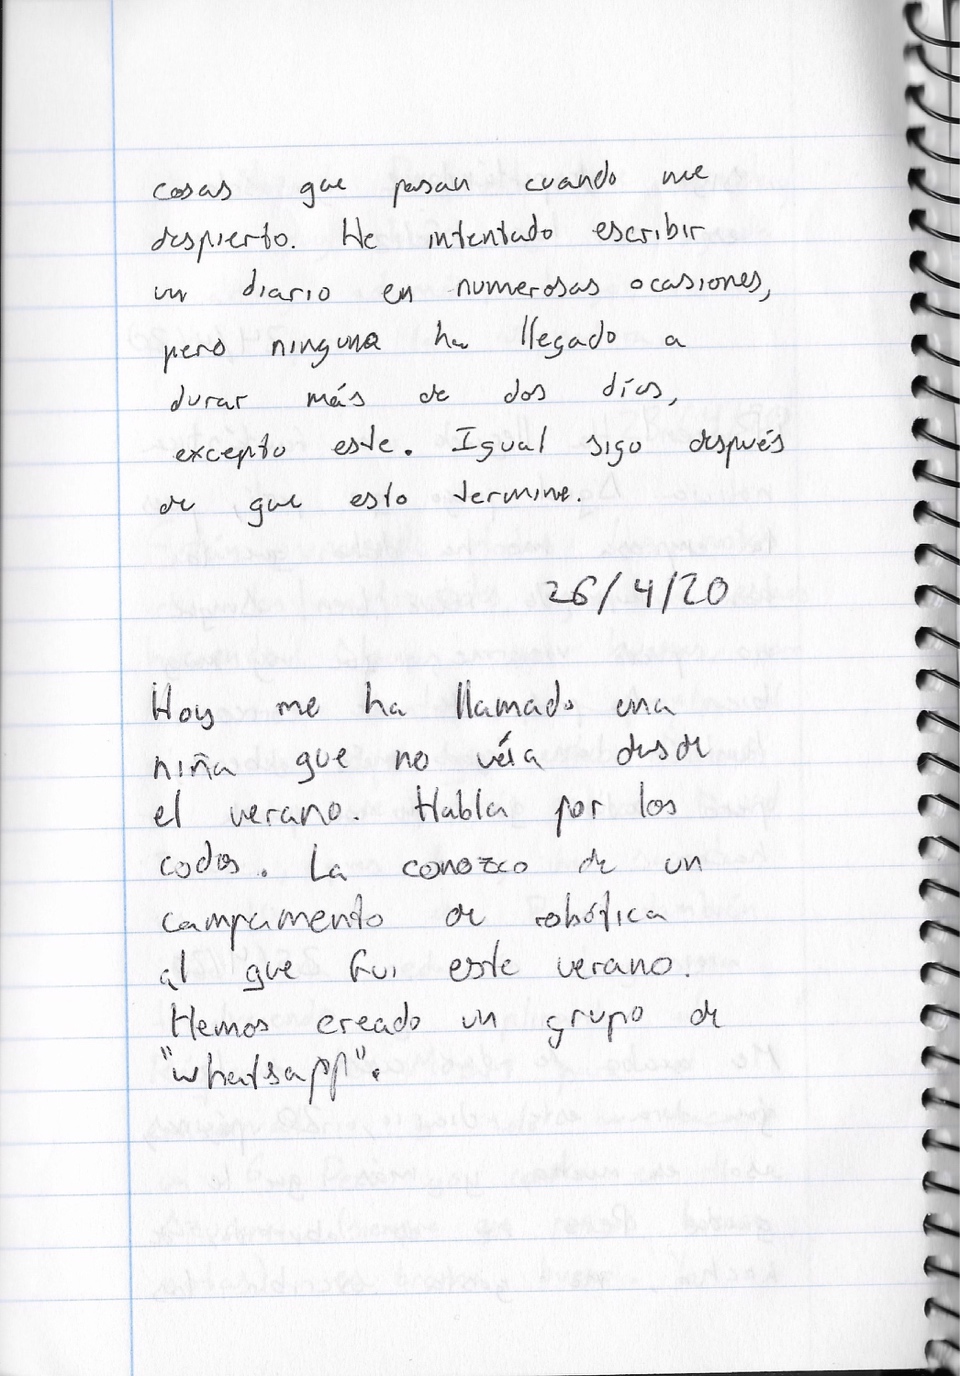 cosas que pasan cuando me
despierto. He intentado escribir
un diario en numerosas ocasiones,
pero ninguna ha llegado a
durar más de dos días,
excepto este. Igual sigo después
de que esto termine.
26/4/20
Hoy me ha llamado una
niña que no véia desde
el verano. Habla por los
codos. La conozco de un
campamento de robótica
al que fui este verano.
Hemos creado un grupo de
"whatsapp".